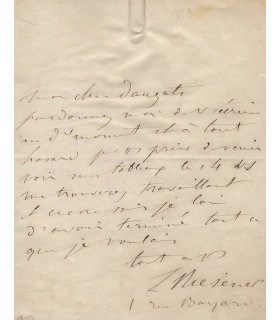 mon cher Dauzats
pardonnez moi de vous écrire
au d. moment et à tout
hasard je vous prie de venir
voir mes tableaux le 14
me trouverez travaillant
et encore suis je loin
d'avoir terminé tout ce
que je voulais
tout à v.
L Riesener
1 rue Bayard